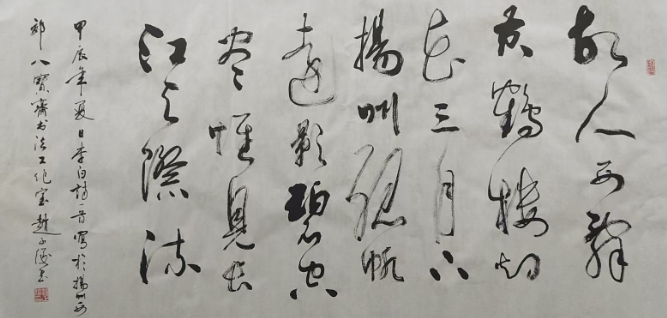 故人西辭
黄鶴樓烟
花三月下
揚州孤帆
遠影碧空
尽惟見長
江天際流
甲辰年夏日李白詩一首寫於揚州西
郊八寶齋书法工作室趙